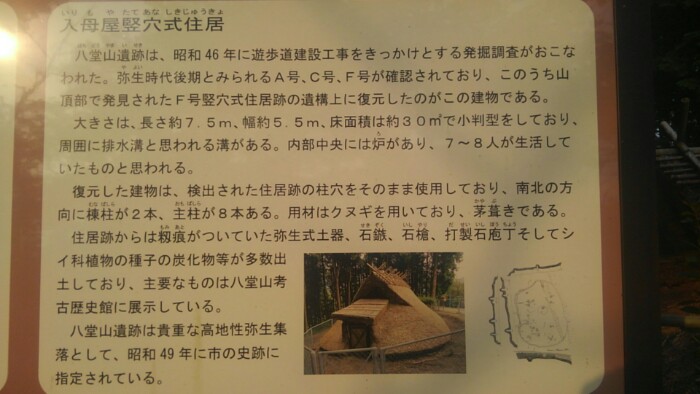 入母屋竪穴式住居
八堂山遺跡は、昭和46年に遊歩道建設工事をきっかけとする発掘調査がおこな
われた。弥生時代後期とみられるA号、C号、F号が確認されており、このうち山
頂部で発見されたF号竪穴式住居跡の遺構上に復元したのがこの建物である。
大きさは、長さ約7.5m、幅約5.5m、床面積は約30㎡で小判型をしており、
周囲に排水溝と思われる溝がある。内部中央には炉があり、7〜8人が生活して
いたものと思われる。
復元した建物は、検出された住居跡の柱穴をそのまま使用しており、南北の方
向に棟柱が2本、主柱が8本ある。用材はクヌギを用いており、茅葺きである。
住居跡からは籾痕がついていた弥生式土器、石鏃、石槍、打製石庖丁そしてシ
イ科植物の種子の炭化物等が多数出
土しており、主要なものは八堂山考
古歴史館に展示している。
八堂山遺跡は貴重な高地性弥生集
落として、昭和49年に市の史跡に
指定されている。